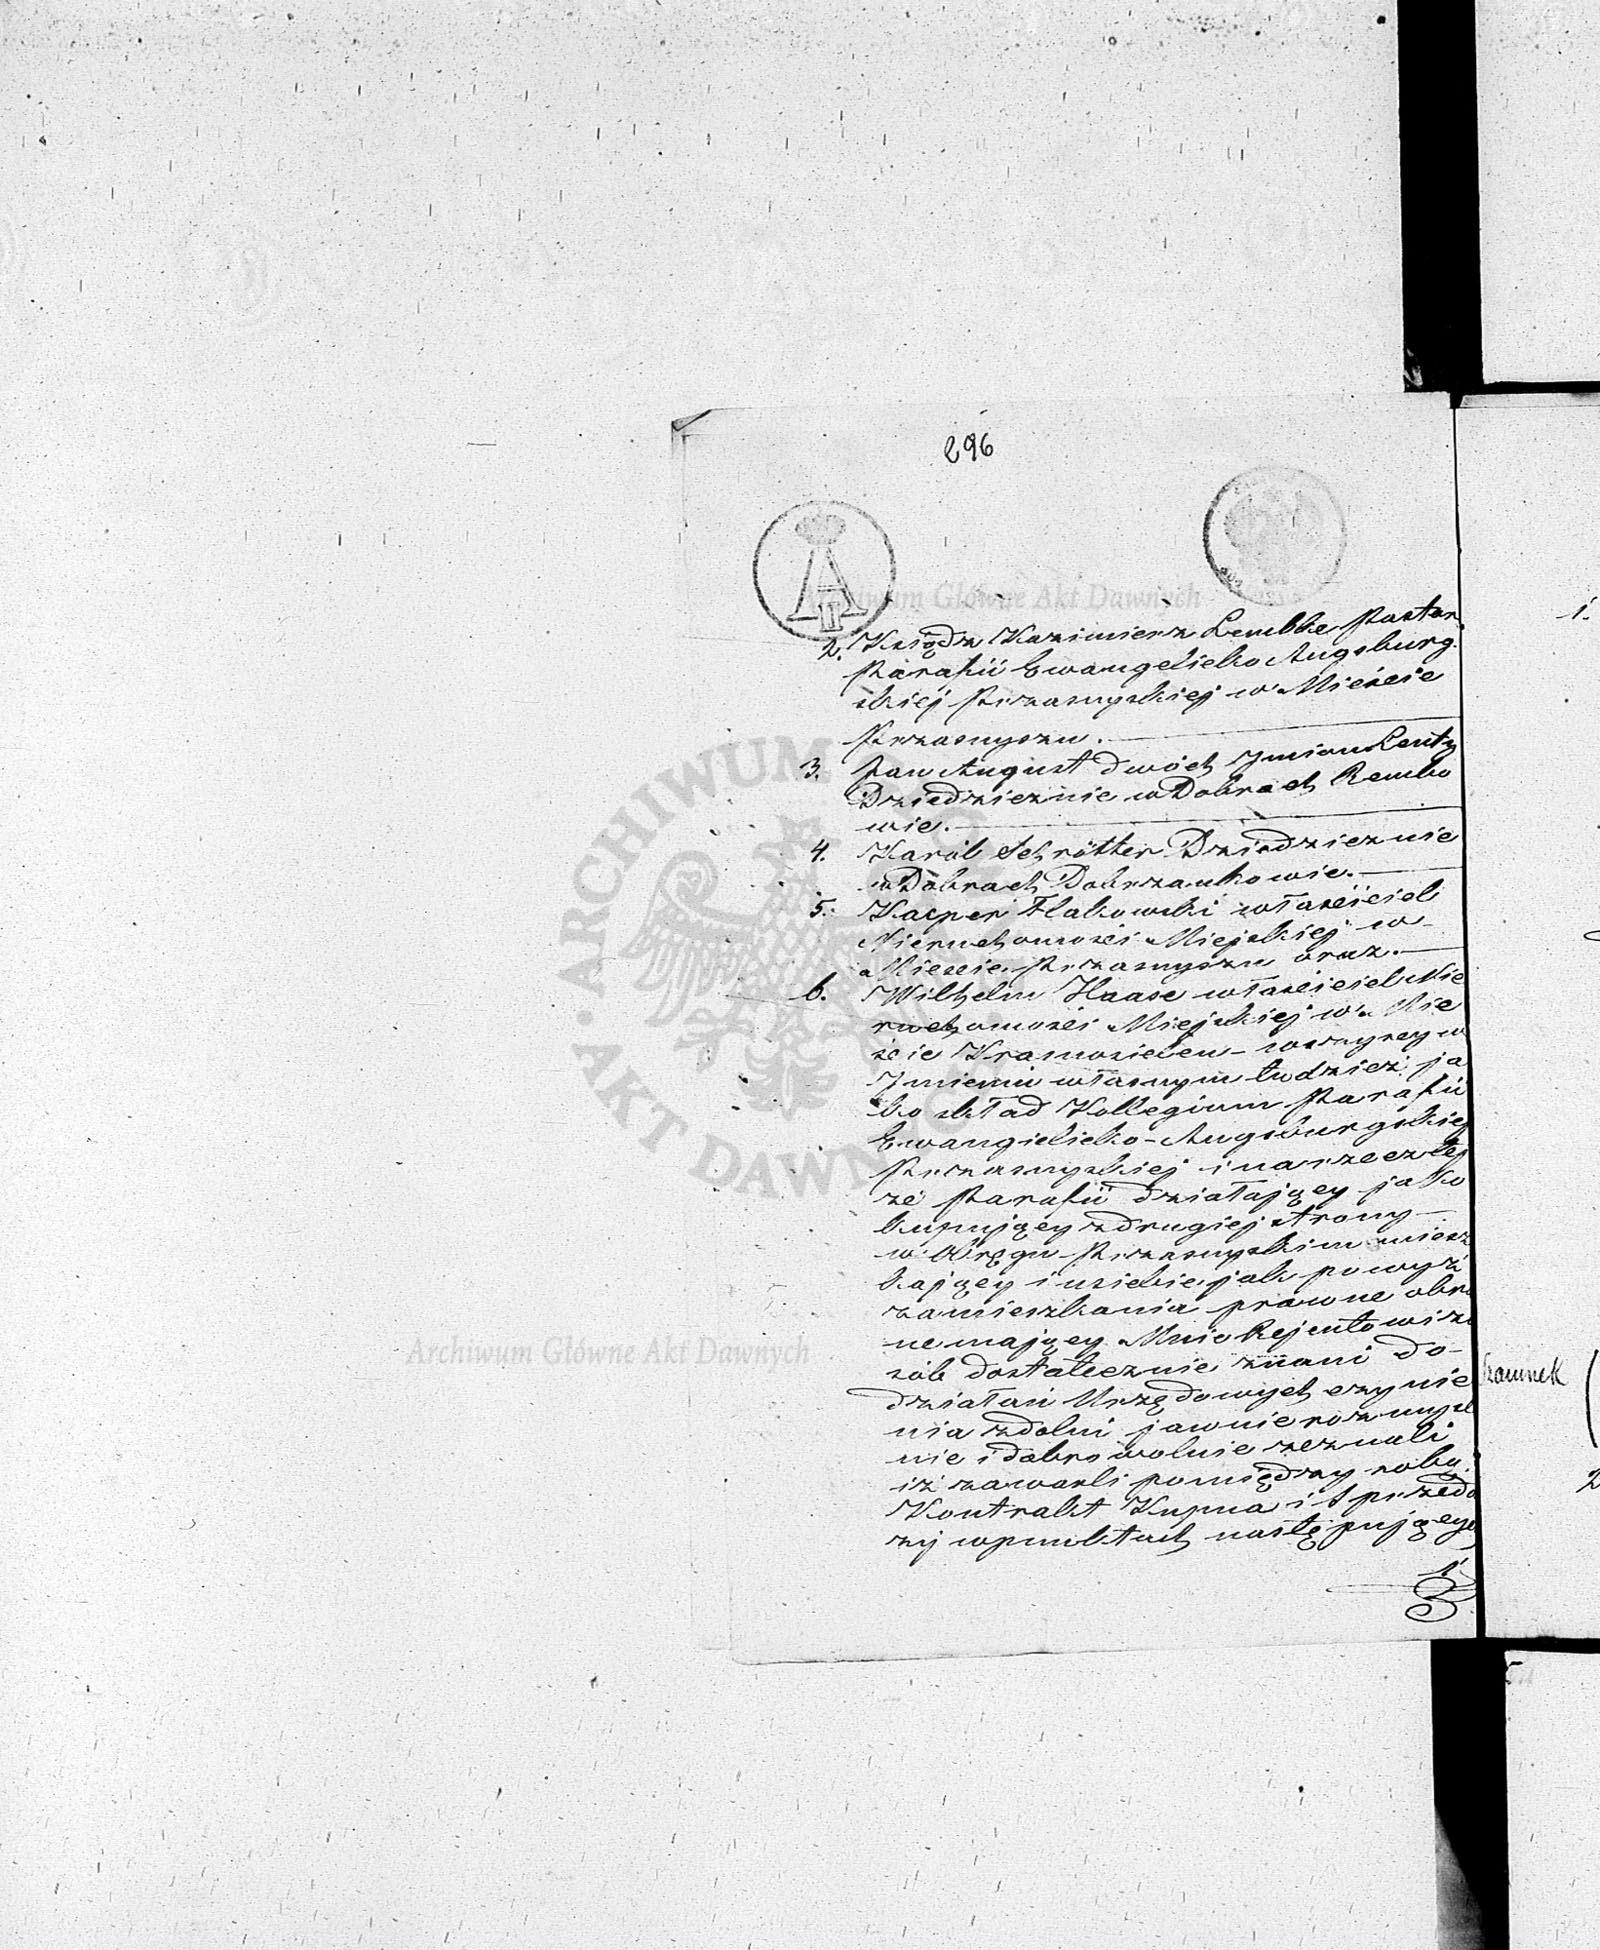 296
2. Ksiądz Kazimierz Lembke Pastor
Parafii Ewangelicko Augsburg
skiej Przasnyskiej w Mieście
Przasnyszu.
3. Pan August dwóch Jmion Lentz
Dziedzicznie w Dobrach Rembo
wie.
4. Karól Schrötter Dziedzicznie
w Dobrach Dobrzankowie.
5. Kacper Flakowski właściciel
Nieruchomości Miejskiej w
Mieście Przasnyszu oraz.
6. Wilhelm Haase właściciel Nie
ruchomości Miejskiej w Mie
ście Krasnosielcu - wszyscy w
Jmieniu własnym tudzież ja
ko skład Kollegium Parafii
Ewangielicko-Augsburgskiej
Przasnyskiej i na rzecz tej
że Parafii działający jako
kupujący z drugiej strony
w Okręgu Przasnyskim miesz
kający i u siebie jak powyż
zamieszkania prawne obra
ne mający. Mnie Rejentowi z o
sób dostatecznie znani do
działań Urzędowych czynie
nia zdolni jawnie rozmyśl
nie i dobrowolnie zeznali
iż zawarli pomiędzy sobą
Kontrakt Kupna i Sprzeda
ży w punktach następujących
1.
1.
szacunek
2
Archiwum Główne Akt Dawnych
ARCHIWUM GŁÓWNE AKT DAWNYCH
Archiwum Główne Akt Dawnych